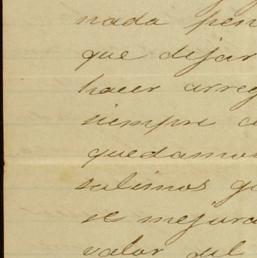 nada pen
que dejar
hacer arreg
siempre a
quedamos
salimos ga
se mejora
valor del